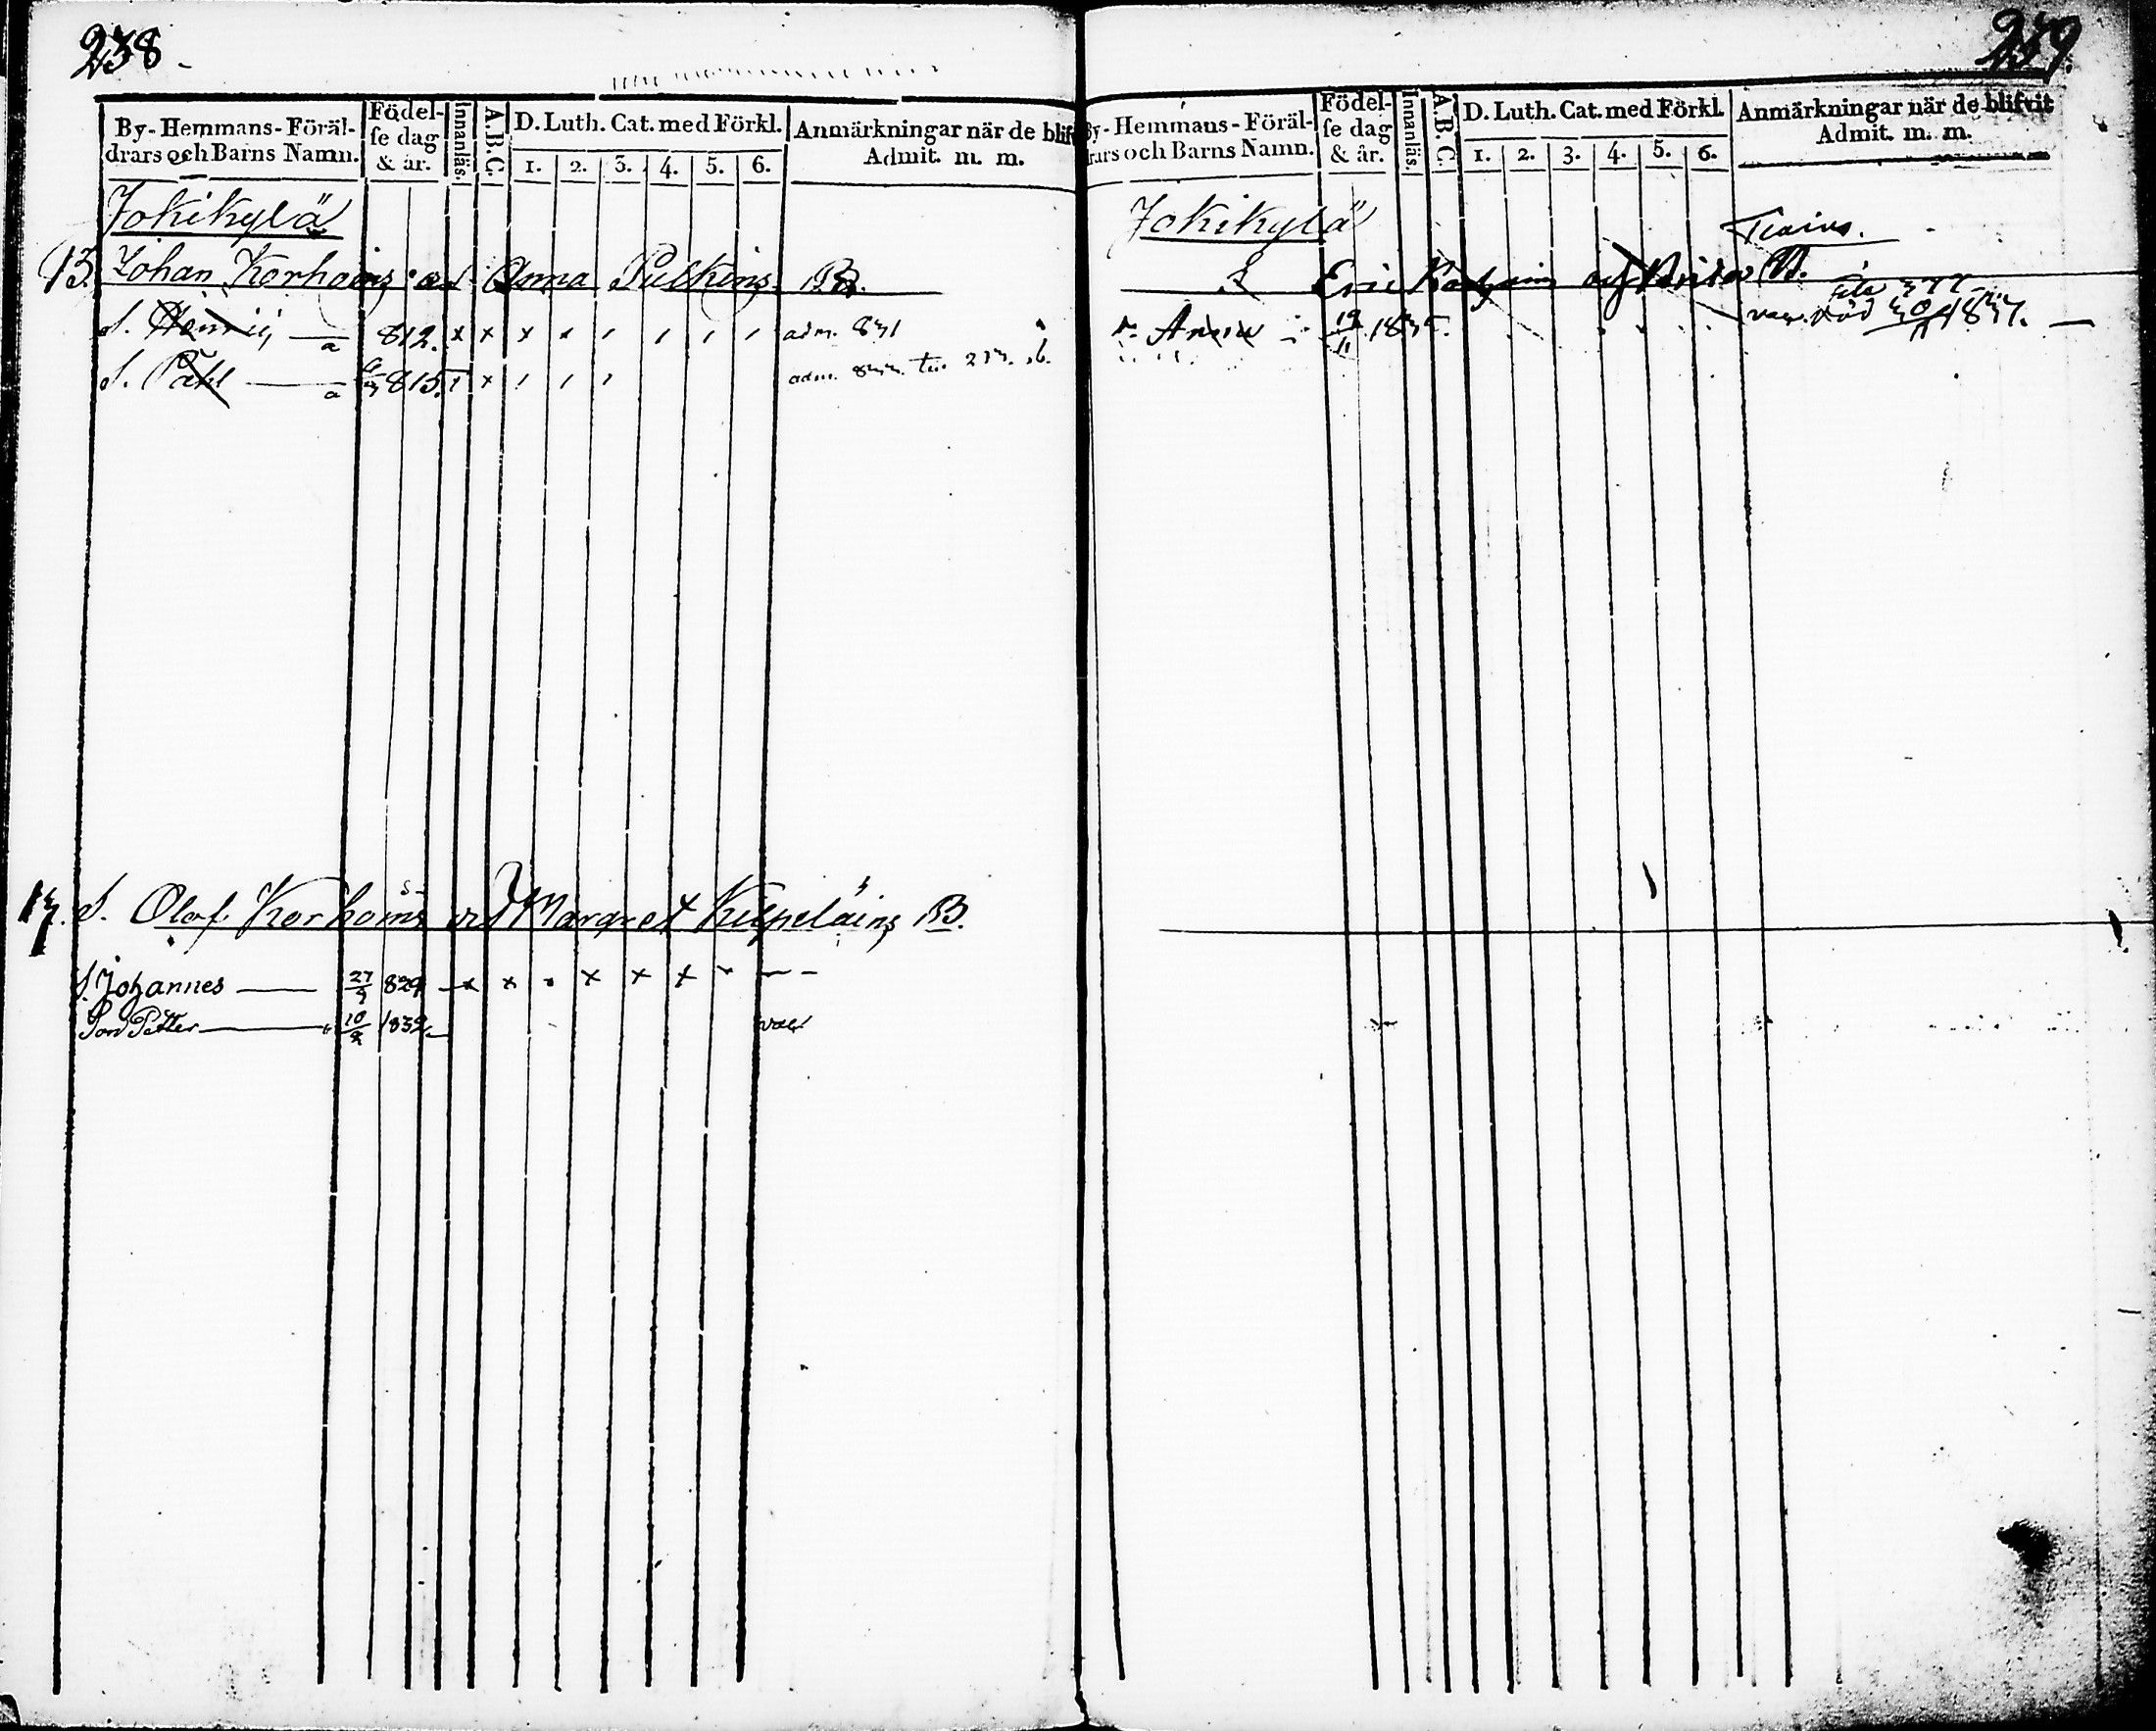 238.
By-Hemmans-Föräl-
drars och Barns Namn.
Födel-
se dag
& år.
Innanläs.
A.B.C.
D. Luth. Cat. med Förkl.
1. 2. 3. 4. 5. 6.
Anmärkningar när de blif
Admit. m. m.
Jokikylä
13. Johan Korhoins Anna Pulkins B.
S. Henric a 812. x x x adm. 831
S. Påhl a 815. x adm.
17. S. Olof Korhoins Margret Kilpeläins B.
S. Johannes 27/9 829 x x x x x
Son Petter 10/2 1832
239.
By-Hemmans-Föräl-
drars och Barns Namn.
Födel-
se dag
& år.
Innanläs.
A.B.C.
D. Luth. Cat. med Förkl.
1. 2. 3. 4. 5. 6.
Anmärkningar när de blifvit
Admit. m. m.
Jokikylä
Eric B.
Anna 19/11 1835. vac. död 1837.